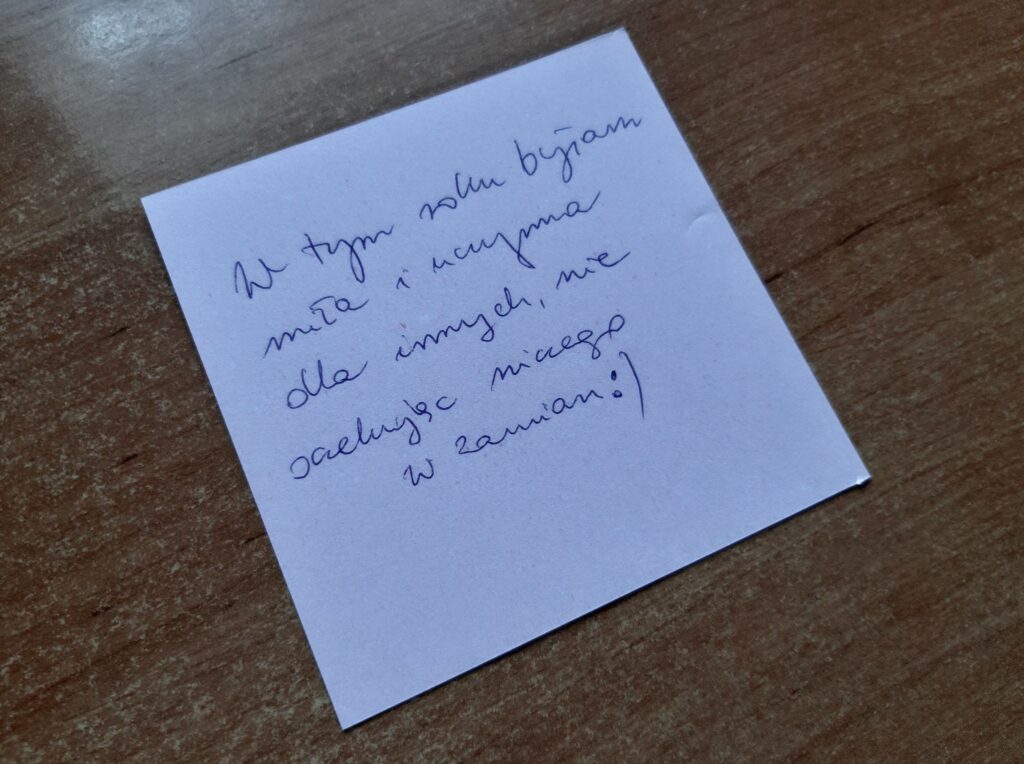 W tym roku byłam
miła i uczynna
dla innych, nie
oczekując niczego
w zamian :)